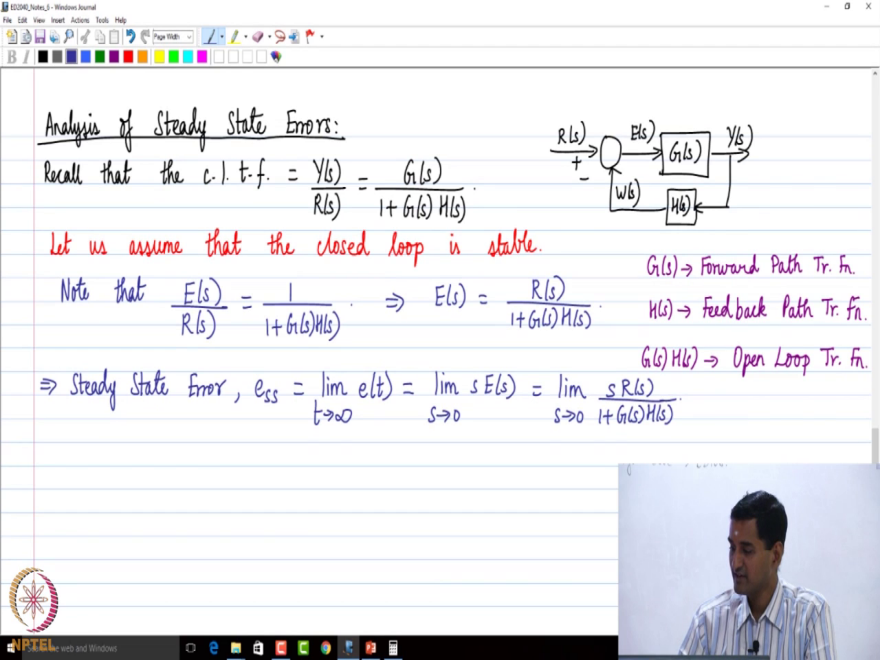 ED2040_Notes_6 - Windows Journal
File Edit View Insert Actions Tools Help
Page Width
B I
Analysis of Steady State Errors:
Recall that the c.l.t.f. = Y(s)/R(s) = G(s)/(1+G(s)H(s)).
R(s) + - E(s) G(s) Y(s)
W(s) H(s)
Let us assume that the closed loop is stable.
Note that E(s)/R(s) = 1/(1+G(s)H(s)). ⇒ E(s) = R(s)/(1+G(s)H(s)).
G(s) → Forward Path Tr. Fn.
H(s) → Feedback Path Tr. Fn.
G(s)H(s) → Open Loop Tr. Fn.
⇒ Steady State Error, e_ss = lim t→∞ e(t) = lim s→0 s E(s) = lim s→0 sR(s)/(1+G(s)H(s)).
NPTEL
the web and Windows